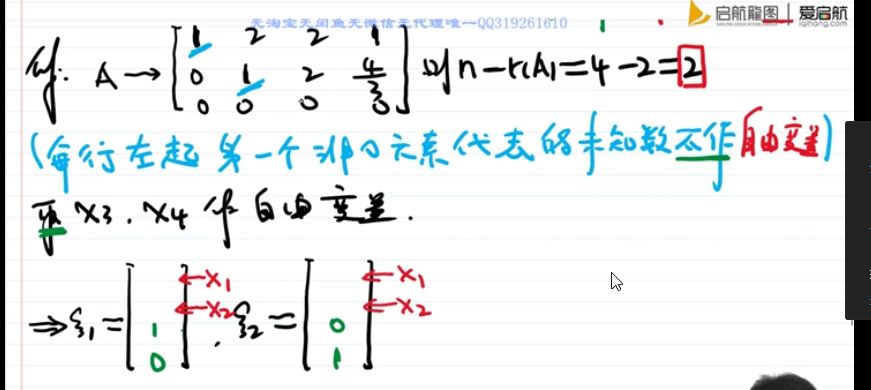 无淘宝无闲鱼无微信无代理唯一QQ319261610
启航龍图 | 爱启航
SAILING EDUCATION iqihang.com
解: A → [1 2 2 1
0 1 2 4/3
0 0 0 0] 则 n-r(A)=4-2=2
(每行左起第一个非0元素代表的未知数不作自由变量)
取 x3, x4 作自由变量.
⇒ ξ1 = [ 1 0 ] ← x1 ← x2 , ξ2 = [ 0 1 ] ← x1 ← x2